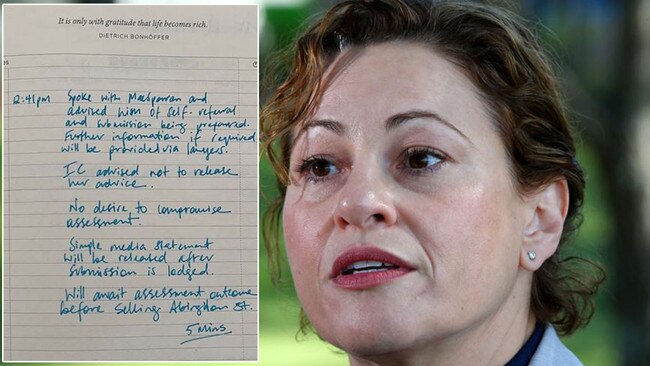 It is only with gratitude that life becomes rich.
DIETRICH BONHÖFFER
12:41pm Spoke with MacSporran and
advised him of self-referral
and submission being prepared.
Further information if required
will be provided via lawyers.
IC advised not to release
her advice.
No desire to compromise
assessment.
Simple media statement
will be released after
submission is lodged.
Will await assessment outcome
before selling Abingdon St.
5 mins